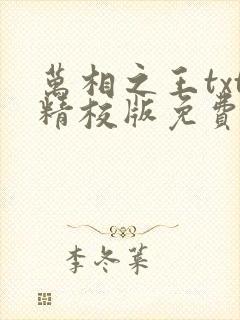 萬相之王txt
精校版免費
李冬菜